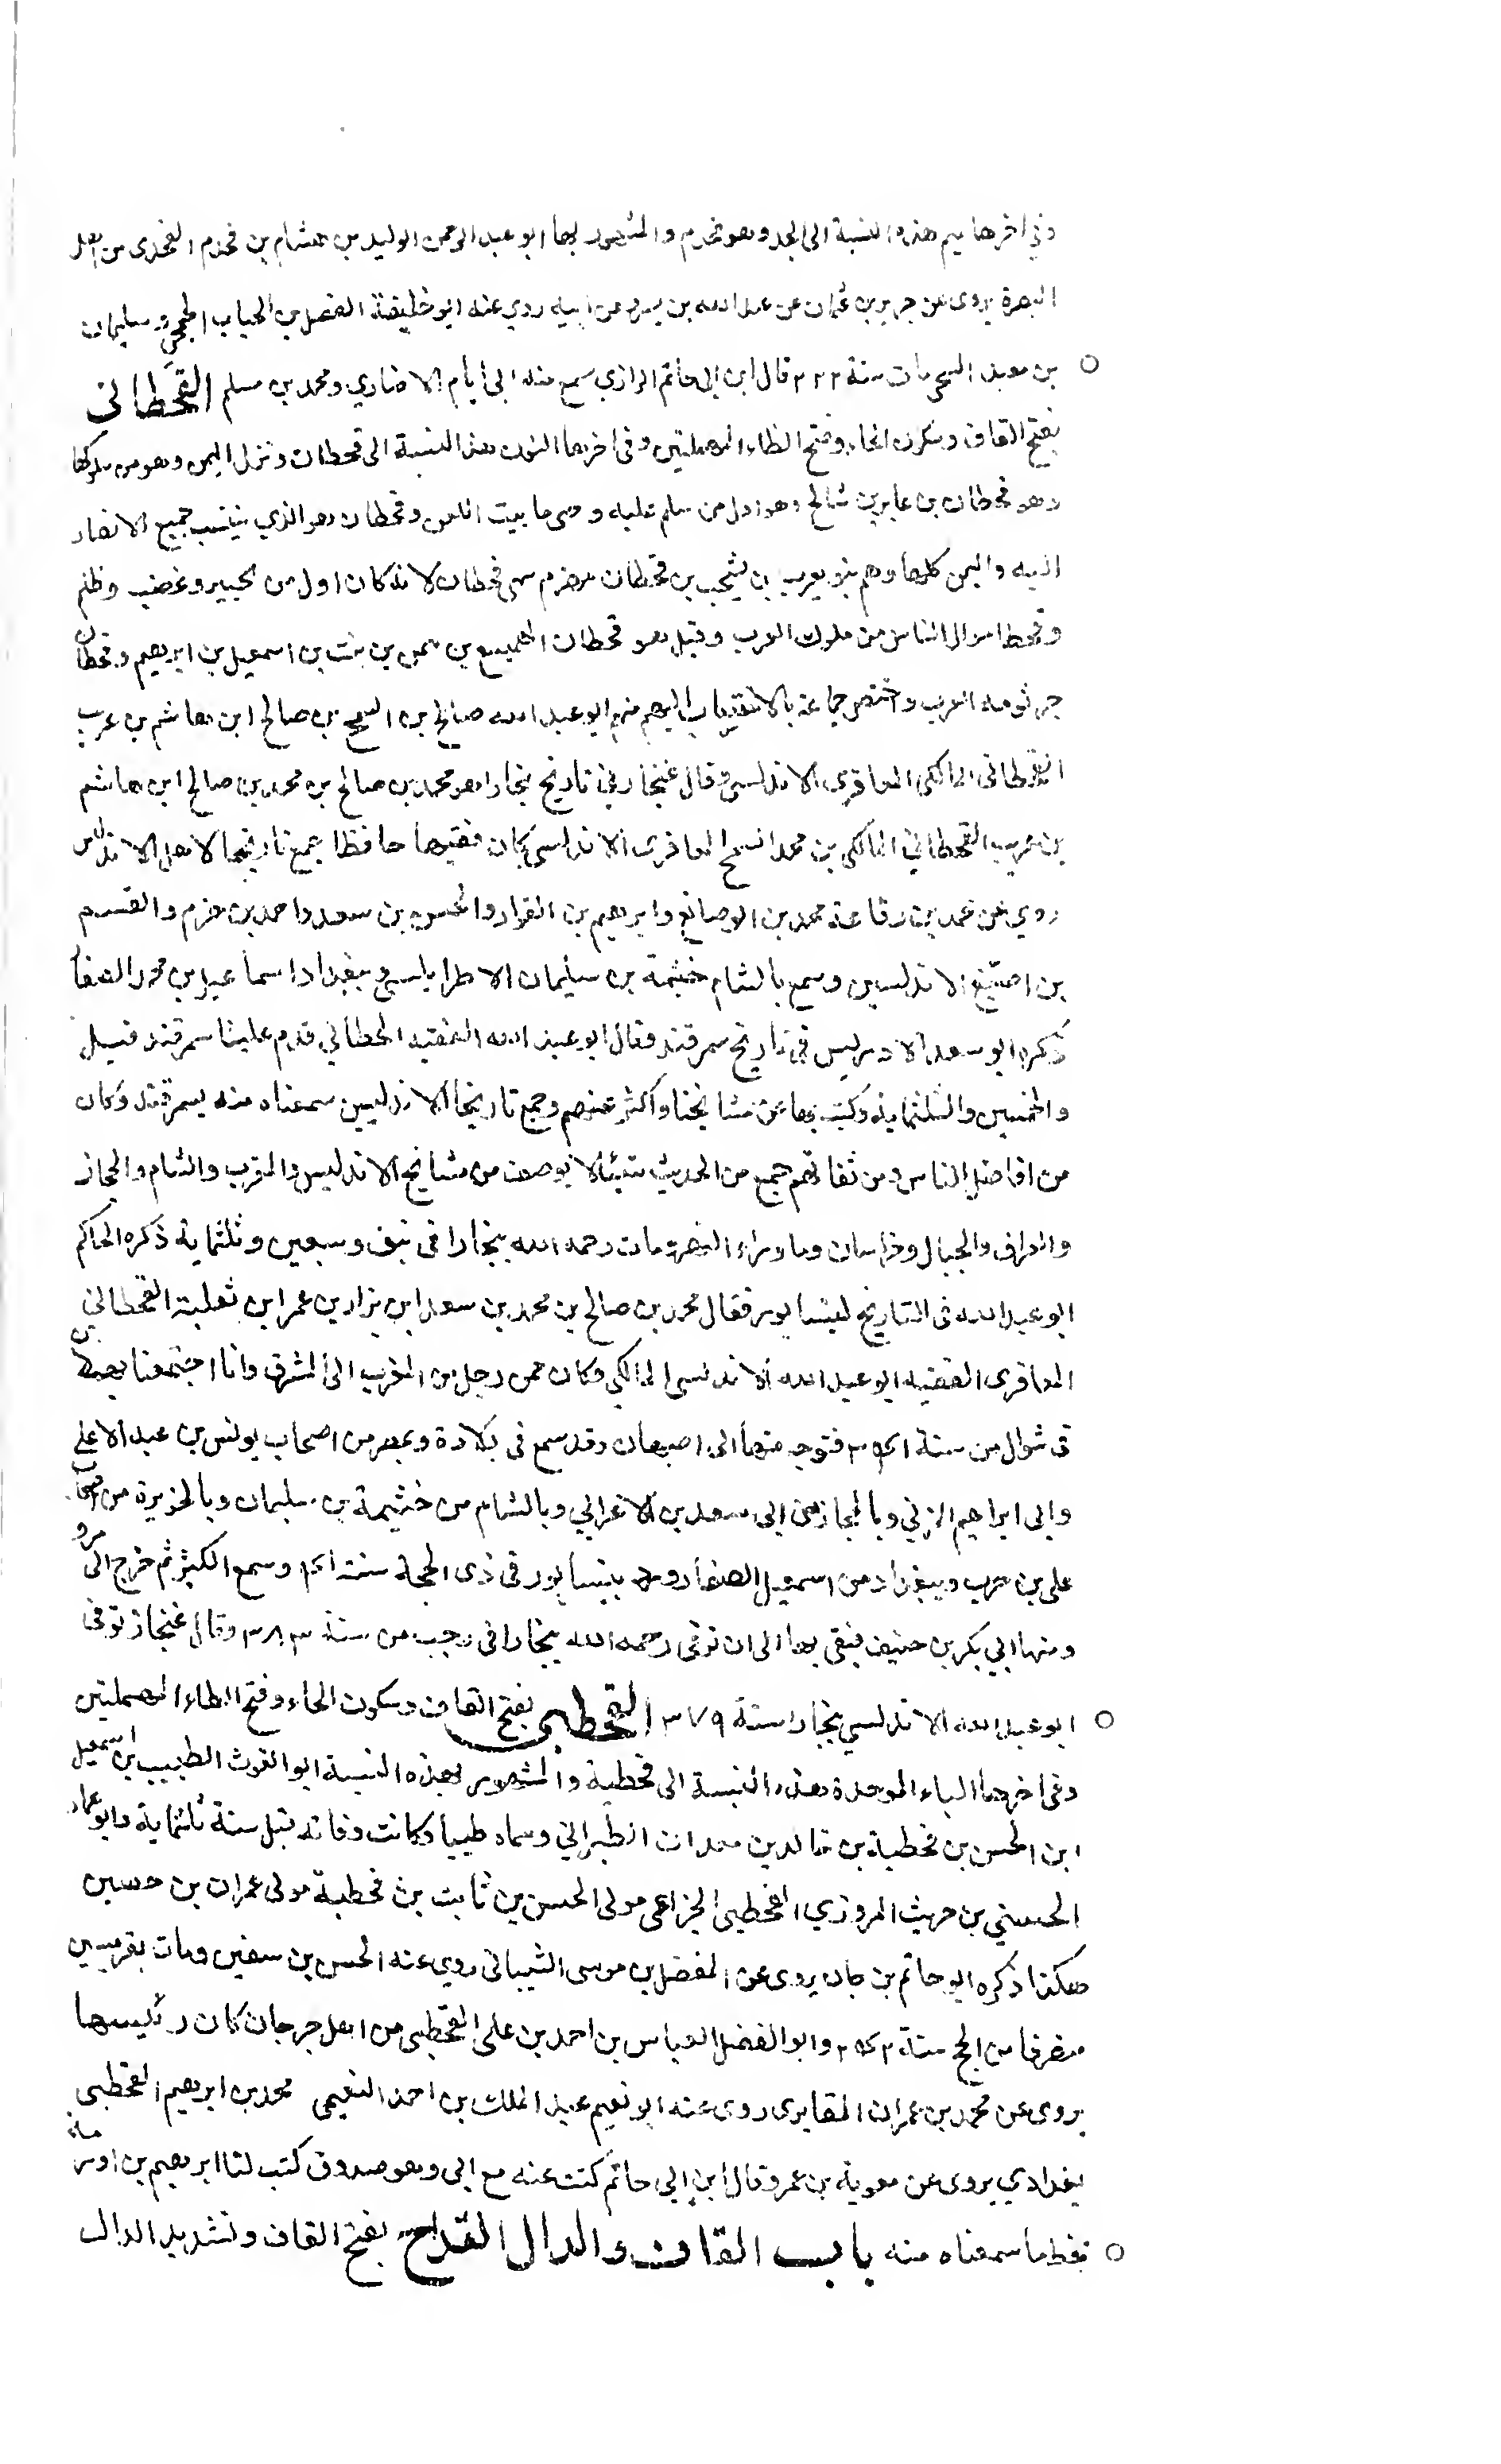 وفي اخرها ميم هذه النسبة الى الجد وهو قحذم والمشهور بها ابو عبد الرحمن الوليد بن هشام بن قحذم القحذمى من اهل
البصرة يروى عن جرير بن عثمان عن عبد الله بن بسر عن ابيه روي عنه ابو خليفة الفضل بن الحباب الجمحي و سليمان
بن معبد السنجي مات سنة ٢٢٢ قال ابن ابى حاتم الرازي سمع منه ابى أيام الانصاري ومحمد بن مسلم القحطانى
بفتح القاف وسكون الحاء وفتح الطاء المهملتين وفى اخرها النون هذه النسبة الى قحطان ونزل اليمن وهو من ملوكها
وهو قحطان بن عابر بن شالخ وهو اول من سلم عليه و بيت اللعن وقحطان هو الذي ينتسب جميع الانصار
اليه واليمن كلها وهم بنو يعرب بن يشجب بن قحطان سمى قحطان لانه كان اول من تجبر وغضب وظلم
وقحط اموال الناس من ملوك العرب وقيل هو قحطان الهميسع بن بن نبت بن اسمعيل بن ابرهيم وقحطان
جرثومه العرب واختص جماعة بالانتساب اليهم منهم ابو عبد الله صالح بن السمح بن صالح ابن هاشم بن عرب
القحطانى المالكى المعافرى الاندلسى وقال غنجار في تاريخ بخارا هو محمد بن صالح بن محمد بن صالح ابن هاشم
بن عريب القحطانى المالكى بن محمد السمح المعافرى الاندلسى كان فقيها حافظا جمع تاريخا لاهل الاندلس
روي عن محمد بن رفاعة محمد بن الوصاتع وابرهيم بن القواد والحسن بن سعد واحمد بن حزم والقسم
بن اصبغ الاندلسين وسمع بالشام خيثمة بن سليمان الاطرابلسي وببغداد اسماعيل بن محمد الصفا
ذكره ابو سعد الادريسى فى تاريخ سمرقند فقال ابو عبد الله الفقيه القحطاني قدم علينا سمرقند قبل
والخمسين والثلثماية وكتب بها عن مشايخنا وأكثر عنهم وجمع تاريخا الاندلسيين سمعناه منه بسمرقند وكان
من افاضل الناس ومن ثقاتهم جمع من الحديث شيئا لا يوصف من مشايخ الاندليس والمغرب والشام والحجاز
والعراق والجبال وخراسان وما وراء النهر ومات رحمه الله ببخارا فى نيف وسبعين وثلثماية ذكره الحاكم
ابو عبد الله فى التاريخ لنيسابور فقال محمد بن صالح بن محمد بن سعد ابن نزار بن عمر ابن ثعلبة القحطانى
المعافرى الفقيه ابو عبد الله الاندلسى المالكي وكان ممن رحل من المغرب الى المشرق وانا اجتمعنا بهمدان
فى شوال من سنة ٣٤١ فتوجه منها الى اصبهان وقد سمع فى بلاده وبمصر من اصحاب يونس بن عبد الاعلى
وابى ابراهيم المزني وبالحجاز من ابى سعد بن الاعرابي وبالشام من خيثمة بن سليمان وبالجزيرة من اصحاب
على بن حرب وببغداد من اسمعيل الصفار وورد بنيسابور فى ذى الحجة سنة ٣٤١ وسمع الكثير ثم خرج الى مرو
ومنها الى بكر بن حنيف فبقى بها الى ان توفى رحمه الله ببخارا فى رجب من سنة ٣٨٣ وقال غنجار توفى
ابو عبد الله الاندلسي ببخارا سنة ٣٧٩ القحطبى بفتح القاف وسكون الحاء وفتح الطاء المهملتين
وفى اخرها الباء الموحدة هذه النسبة الى قحطبة والمشهور بهذه النسبة ابو الغوث الطبيب ابن اسمعيل
ابن الحسن بن قحطبة بن خالد بن معدان الطبراني وسماه طبيبا وكانت وفاته قبل سنة ثلثماية وابو عمار
الحسيني بن حريث المروزي القحطبى الخزاعى مولى الحسن بن ثابت بن قحطبة مولى عمران بن حسين
هكذا ذكره ابو حاتم بن حبان يروى عن المفضل بن موسى الشيبانى روي عنه الحسن بن سفين ومات بقرميسين
منصرفا من الحج سنة ٢٤٢ وابو الفضل العباس بن احمد بن على القحطبى من اهل جرجان كان رئيسها
يروى عن محمد بن عمران المقابرى روى عنه ابو نعيم عبد الملك بن احمد النعيمى محمد بن ابرهيم القحطبى
بغدادي يروى عن معوية بن عمرو قال ابن ابي حاتم كتبت عنه مع ابى وهو صدوق كتب لنا ابرهيم بن اورمة
بخط ما سمعناه منه باب القاف والدال القداح بفتح القاف وتشديد الدال